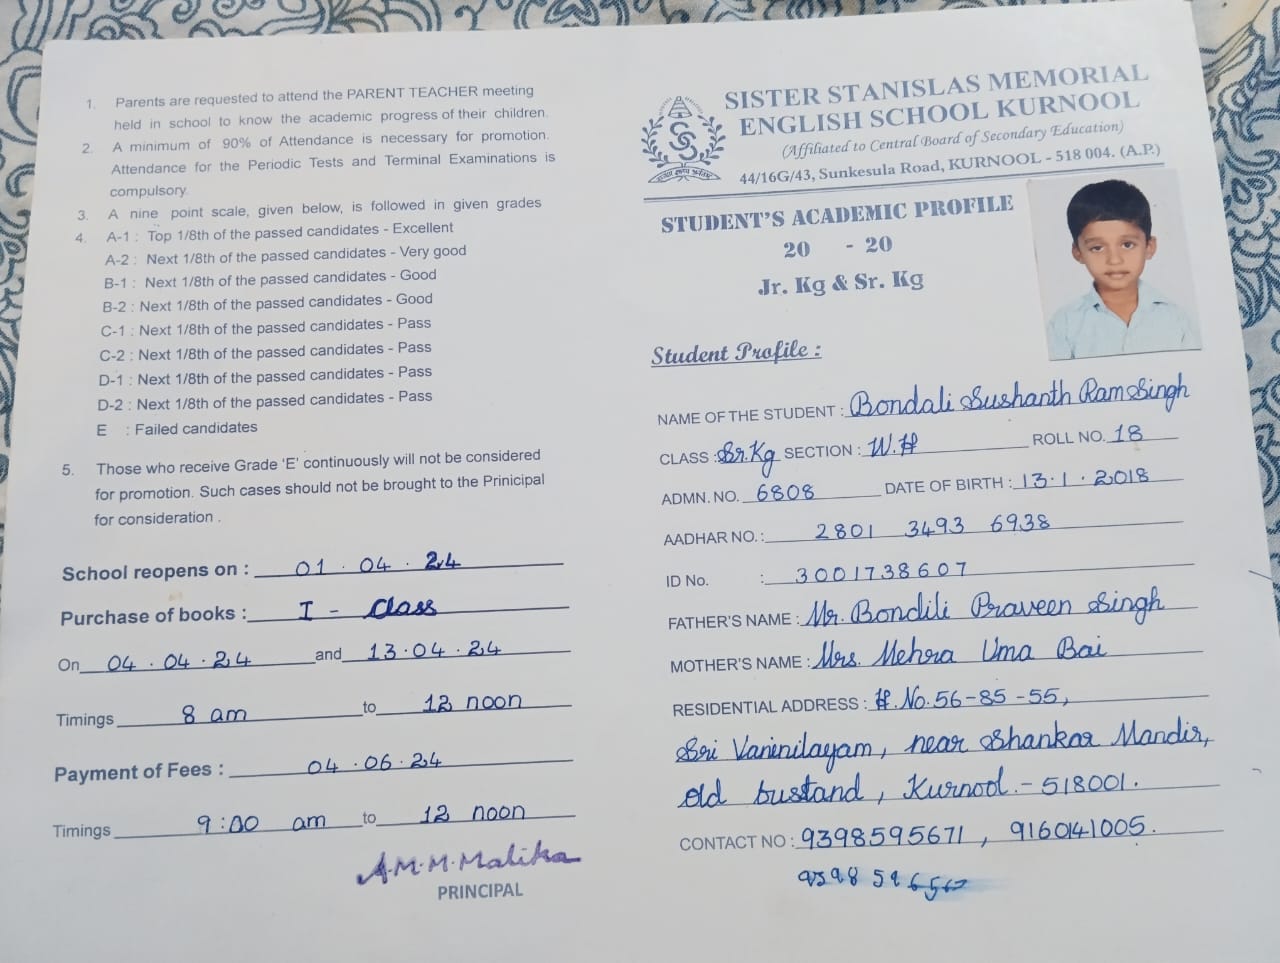 1. Parents are requested to attend the PARENT TEACHER meeting
held in school to know the academic progress of their children.
2. A minimum of 90% of Attendance is necessary for promotion.
Attendance for the Periodic Tests and Terminal Examinations is
compulsory.
3. A nine point scale, given below, is followed in given grades
4. A-1 : Top 1/8th of the passed candidates - Excellent
A-2 : Next 1/8th of the passed candidates - Very good
B-1 : Next 1/8th of the passed candidates - Good
B-2 : Next 1/8th of the passed candidates - Good
C-1 : Next 1/8th of the passed candidates - Pass
C-2 : Next 1/8th of the passed candidates - Pass
D-1 : Next 1/8th of the passed candidates - Pass
D-2 : Next 1/8th of the passed candidates - Pass
E : Failed candidates
5. Those who receive Grade 'E' continuously will not be considered
for promotion. Such cases should not be brought to the Prinicipal
for consideration .
School reopens on : 01 . 04 . 24
Purchase of books : I - Class
On 04 . 04 . 24 and 13 . 04 . 24
Timings 8 am to 12 noon
Payment of Fees : 04 . 06 . 24
Timings 9 : 00 am to 12 noon
A.M.M.Malika
PRINCIPAL
SISTER STANISLAS MEMORIAL
ENGLISH SCHOOL KURNOOL
(Affiliated to Central Board of Secondary Education)
44/16G/43, Sunkesula Road, KURNOOL - 518 004. (A.P.)
STUDENT'S ACADEMIC PROFILE
20 - 20
Jr. Kg & Sr. Kg
Student Profile :
NAME OF THE STUDENT : Bondali Sushanth Ram Singh
CLASS : Sr.Kg SECTION : W.H ROLL NO. 18
ADMN. NO. 6808 DATE OF BIRTH : 13.1.2018
AADHAR NO.: 2801 3493 6938
ID No. : 3001738607
FATHER'S NAME : Mr. Bondili Praveen Singh
MOTHER'S NAME : Mrs. Mehra Uma Bai
RESIDENTIAL ADDRESS : H.No.56-85-55,
Sri Vaninilayam, near Shankar Mandir,
old bustand, Kurnool - 518001.
CONTACT NO : 9398595671 , 9160141005.